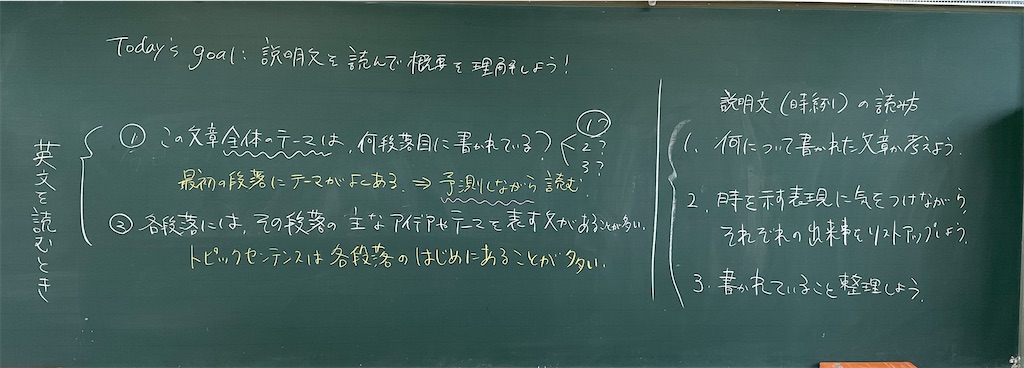 Today's goal: 説明文を読んで概要を理解しよう!
英文を読むとき
① この文章全体のテーマは、何段落目に書かれている?
1?
2?
3?
最初の段落にテーマがよくある. ⇒ 予測しながら読む.
② 各段落には、その段落の主なアイデアやテーマを表す文があることが多い.
トピックセンテンスは各段落のはじめにあることが多い.
説明文(時系列)の読み方
1. 何について書かれた文章か考えよう.
2. 時を示す表現に気をつけながら,
それぞれの出来事をリストアップしよう.
3. 書かれていること整理しよう.